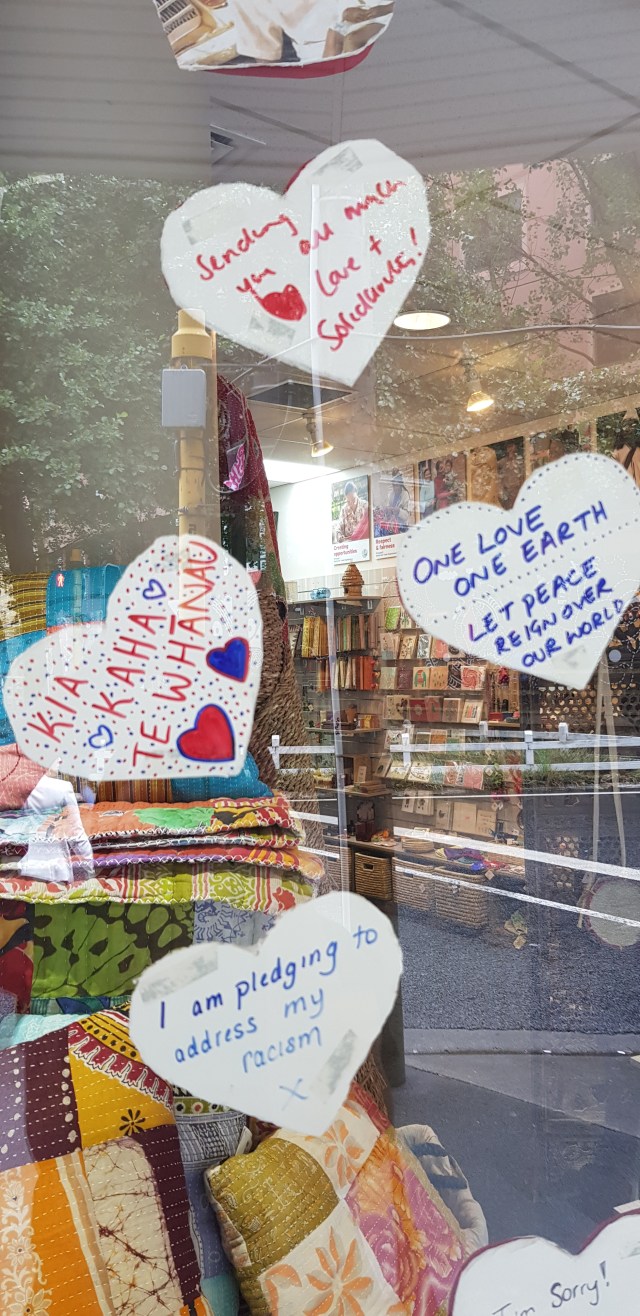 Sending
you all much
Love +
Solidarity!
Creating
opportunities
Respect
& fairness
ONE LOVE
ONE EARTH
LET PEACE
REIGN OVER
OUR WORLD
KIA
KAHA
TE WHĀNAU
I am pledging to
address my
racism
x
I'm Sorry!